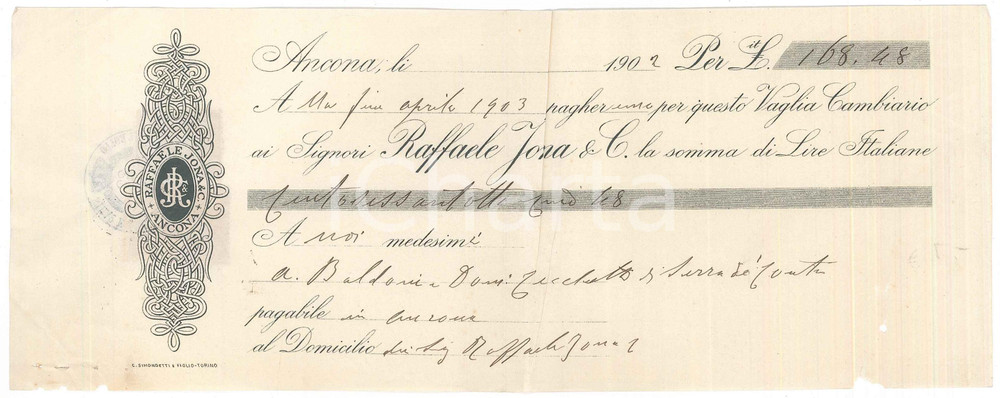 Ancona, li 1902 Per it£. 168.48
A lla fine aprile 1903 pagheremo per questo Vaglia Cambiario
ai Signori Raffaele Jona & C. la somma di Lire Italiane
Centosessantotto cmi 48
A noi medesimi
a. Baldoni e Dom. Cecchetti di Serra de' Conti
pagabile in Ancona
al Domicilio dei Sig Raffaele Jona
RAFFAELE JONA & C.
ANCONA
C. SIMONDETTI & VIGLIO-TORINO
iCharta